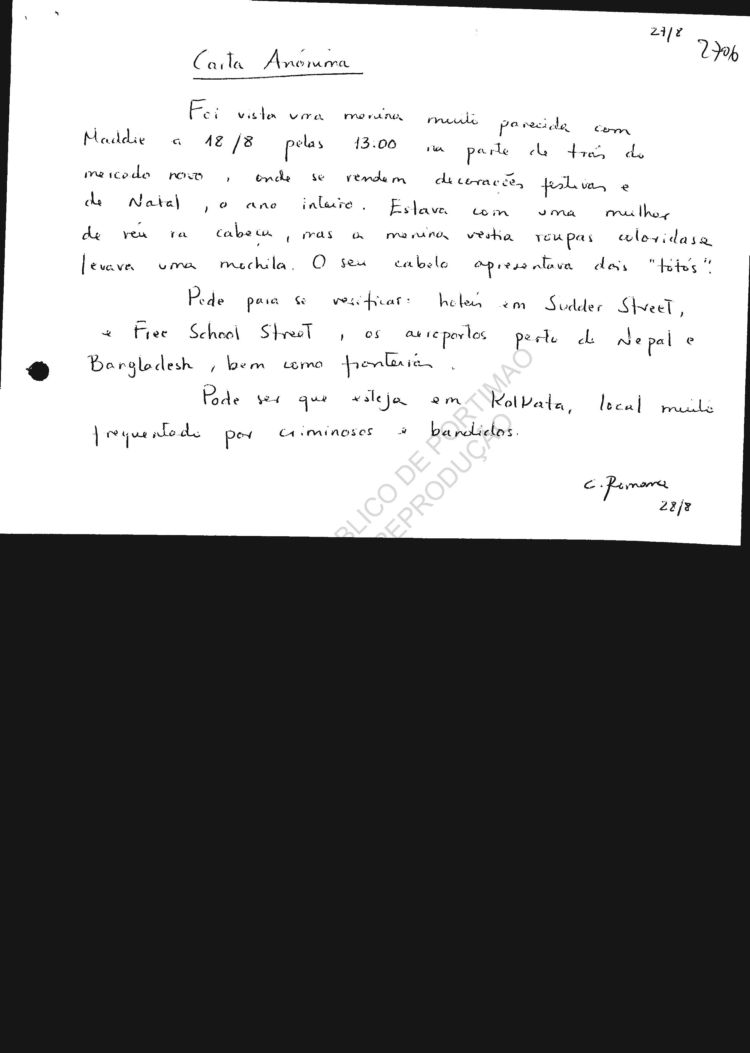 27/8
2706
Carta Anónima
Foi vista uma menina muito parecida com
Maddie a 18/8 pelas 13.00 na parte de trás do
mercado novo, onde se vendem decorações festivas e
de Natal, o ano inteiro. Estava com uma mulher
de véu na cabeça, mas a menina vestia roupas coloridas e
levava uma mochila. O seu cabelo apresentava dois "tótós".
Pede para se verificar: hoteis em Sudder Street,
e Free School Street, os aeroportos perto do Nepal e
Bangladesh, bem como fronteiras.
Pode ser que esteja em Kolkata, local muito
frequentado por criminosos e bandidos.
BLICO DE PORTIMAO
REPRODUÇÃO
28/8